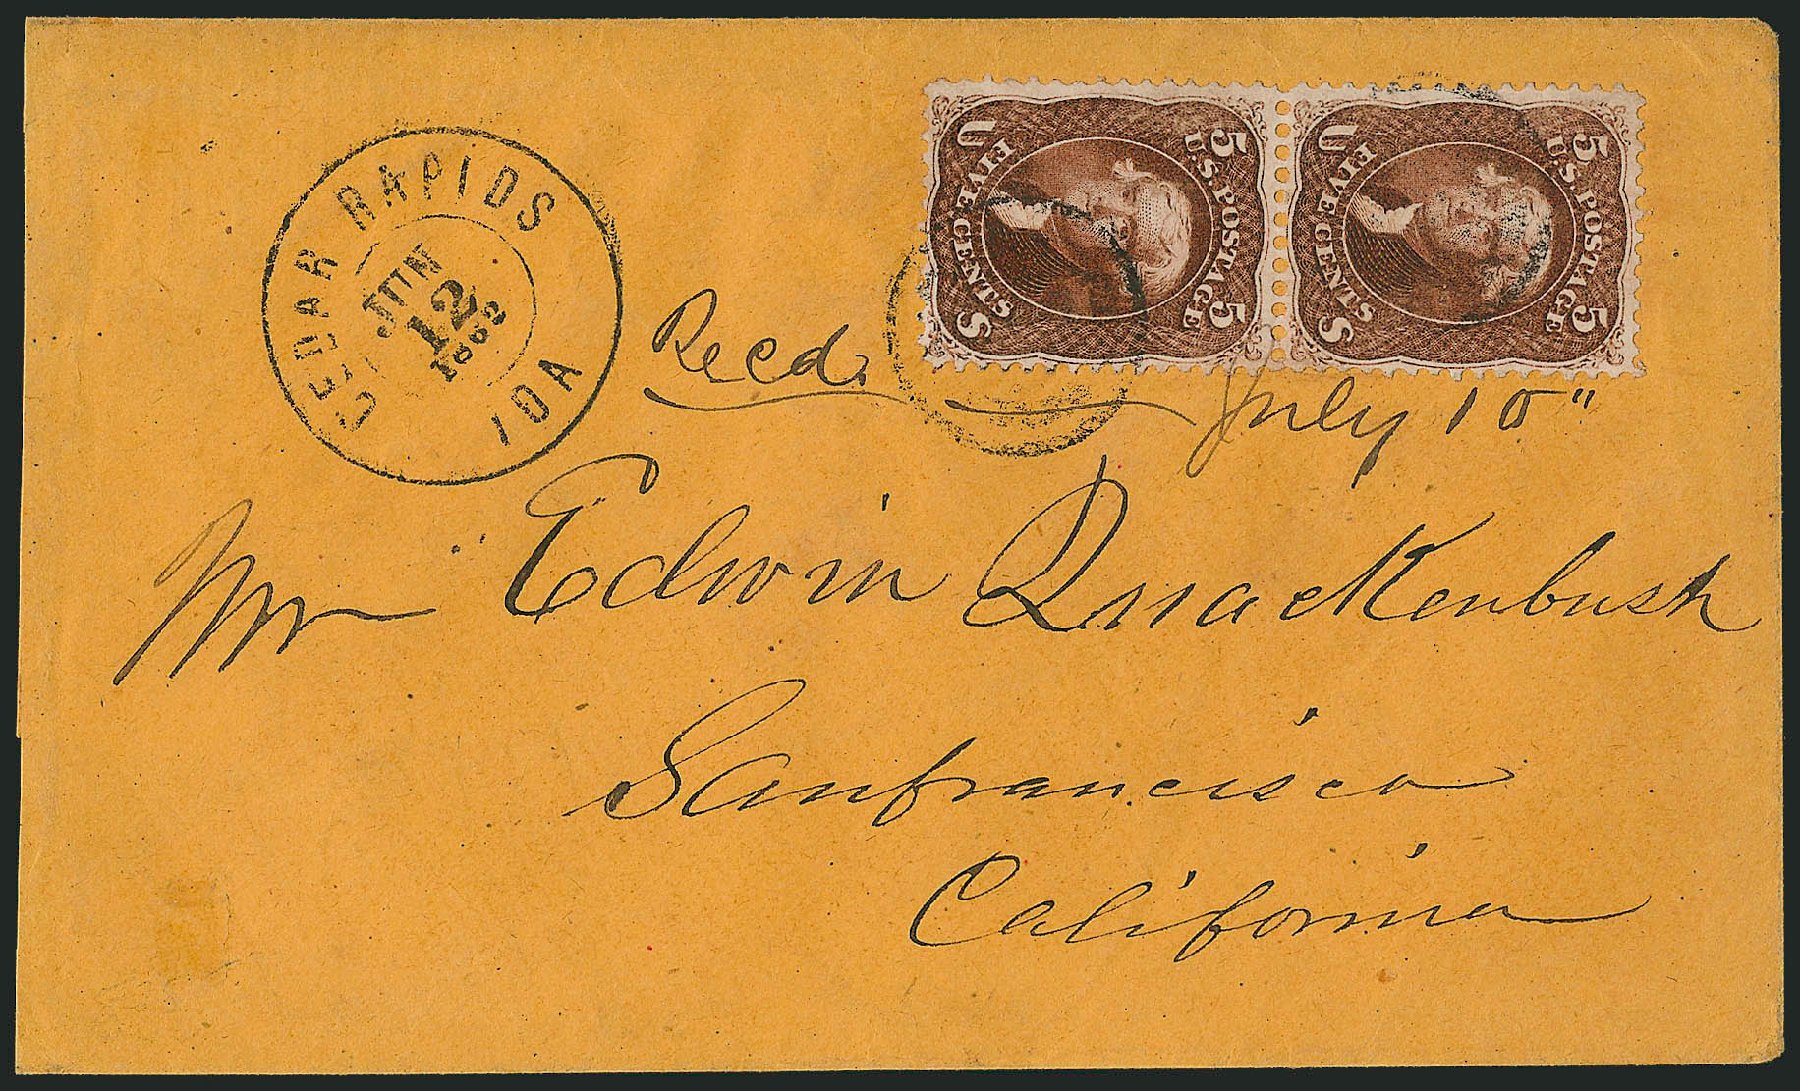 CEDAR RAPIDS IOA
JUN
12
U 5
FIVE CENTS U.S. POSTAGE
S 5
U 5
FIVE CENTS U.S. POSTAGE
S 5
Recd. July 10"
Mr Edwin Quackenbush
Sanfrancisco
California